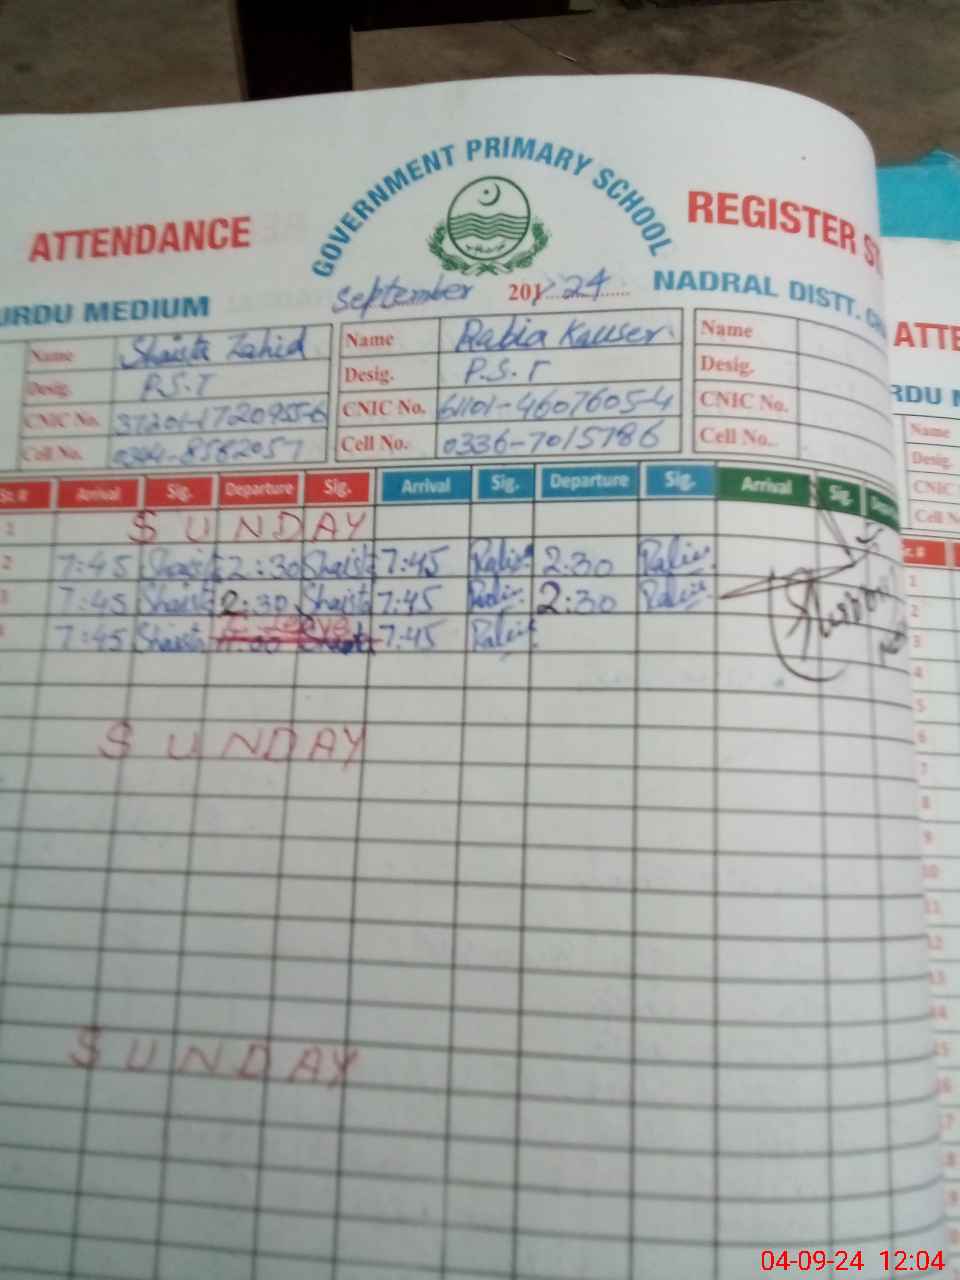 GOVERNMENT PRIMARY SCHOOL
ATTENDANCE REGISTER
URDU MEDIUM September 201 24 NADRAL DISTT.
Name Shaista Zahid Name Rabia Kauser Name
Desig. P.S.T Desig. P.S.T Desig.
CNIC No. CNIC No. 61101-4607605-4 CNIC No.
Cell No. 0344-8582057 Cell No. 0336-7015786 Cell No.
Sr. # Arrival Sig. Departure Sig. Arrival Sig. Departure Sig. Arrival Sig.
1 SUNDAY
2 7:45 Shaista 2:30 Shaista 7:45 Rabia 2:30 Rabia
3 7:45 Shaista 2:30 Shaista 7:45 Rabia 2:30 Rabia
7:45 Shaista Leave 11:00 Shaista 7:45 Rabia
SUNDAY
SUNDAY
ATTE
URDU M
Name
Desig.
CNIC
Cell No
Sr. #
1
2
3
4
5
6
7
8
9
10
11
12
13
14
15
16
04-09-24 12:04